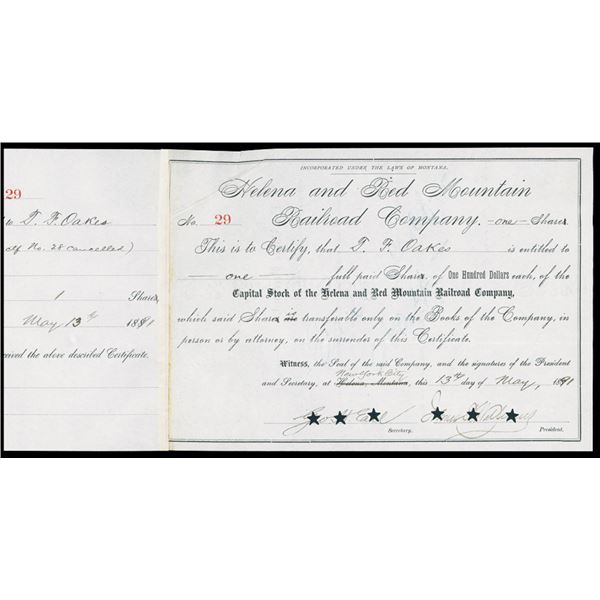 29
to T. F. Oakes
ctf. No. 28 cancelled)
1 Shares
May 13th 1891
ceived the above described Certificate.
INCORPORATED UNDER THE LAWS OF MONTANA.
Helena and Red Mountain
No. 29 Railroad Company. -one- Shares
This is to Certify, that T. F. Oakes is entitled to
one full paid Shares, of One Hundred Dollars each, of the
Capital Stock of the Helena and Red Mountain Railroad Company,
which said Shares is transferable only on the Books of the Company, in
person or by attorney, on the surrender of this Certificate.
Witness, the Seal of the said Company, and the signatures of the President
New York City
and Secretary, at Helena, Montana, this 13th day of May, 1891
Geo. H. Earl
Secretary.
President.